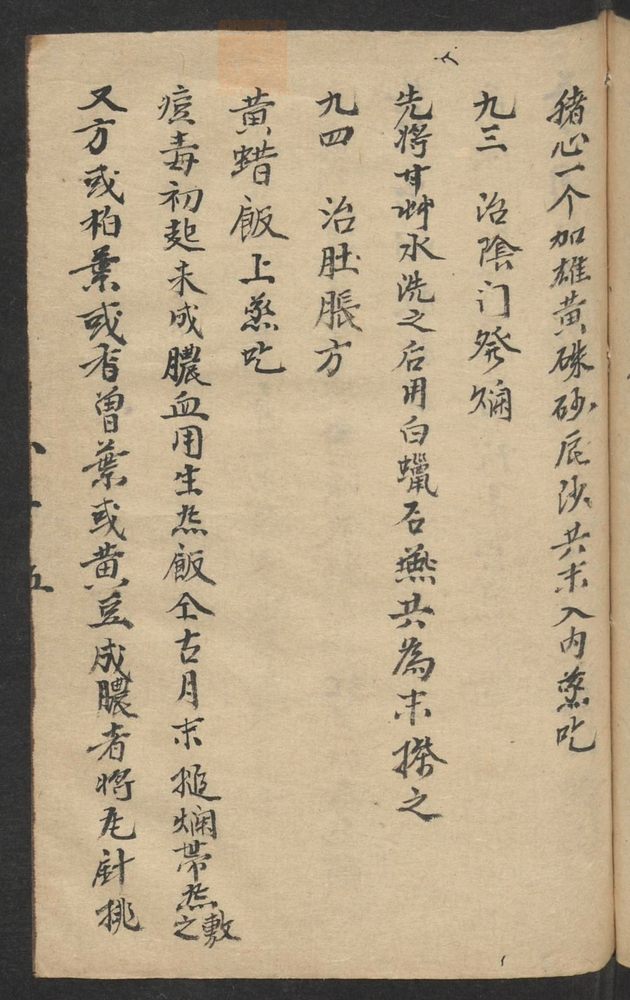 猪心一个加雄黄硃砂辰沙共末入内蒸吃
九三 治陰门發爛
先将甘艸水洗之后用白蠟石燕共為末搽之
九四 治肚脹方
黄蜡飯上蒸吃
痘毒初起未成膿血用生葱飯仝古月末搥爛带葱敷之
又方或柏葉或香曽葉或黄豆成膿者将瓦針挑
八十五